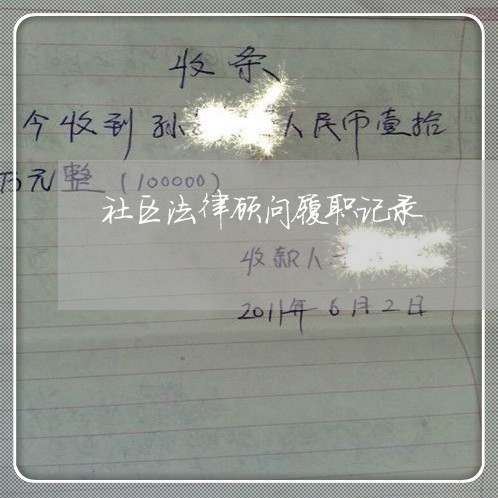 收条
今收到孙 人民币壹拾
万元整(100000)
社区法律顾问履职记录
收款人
2011年6月2日